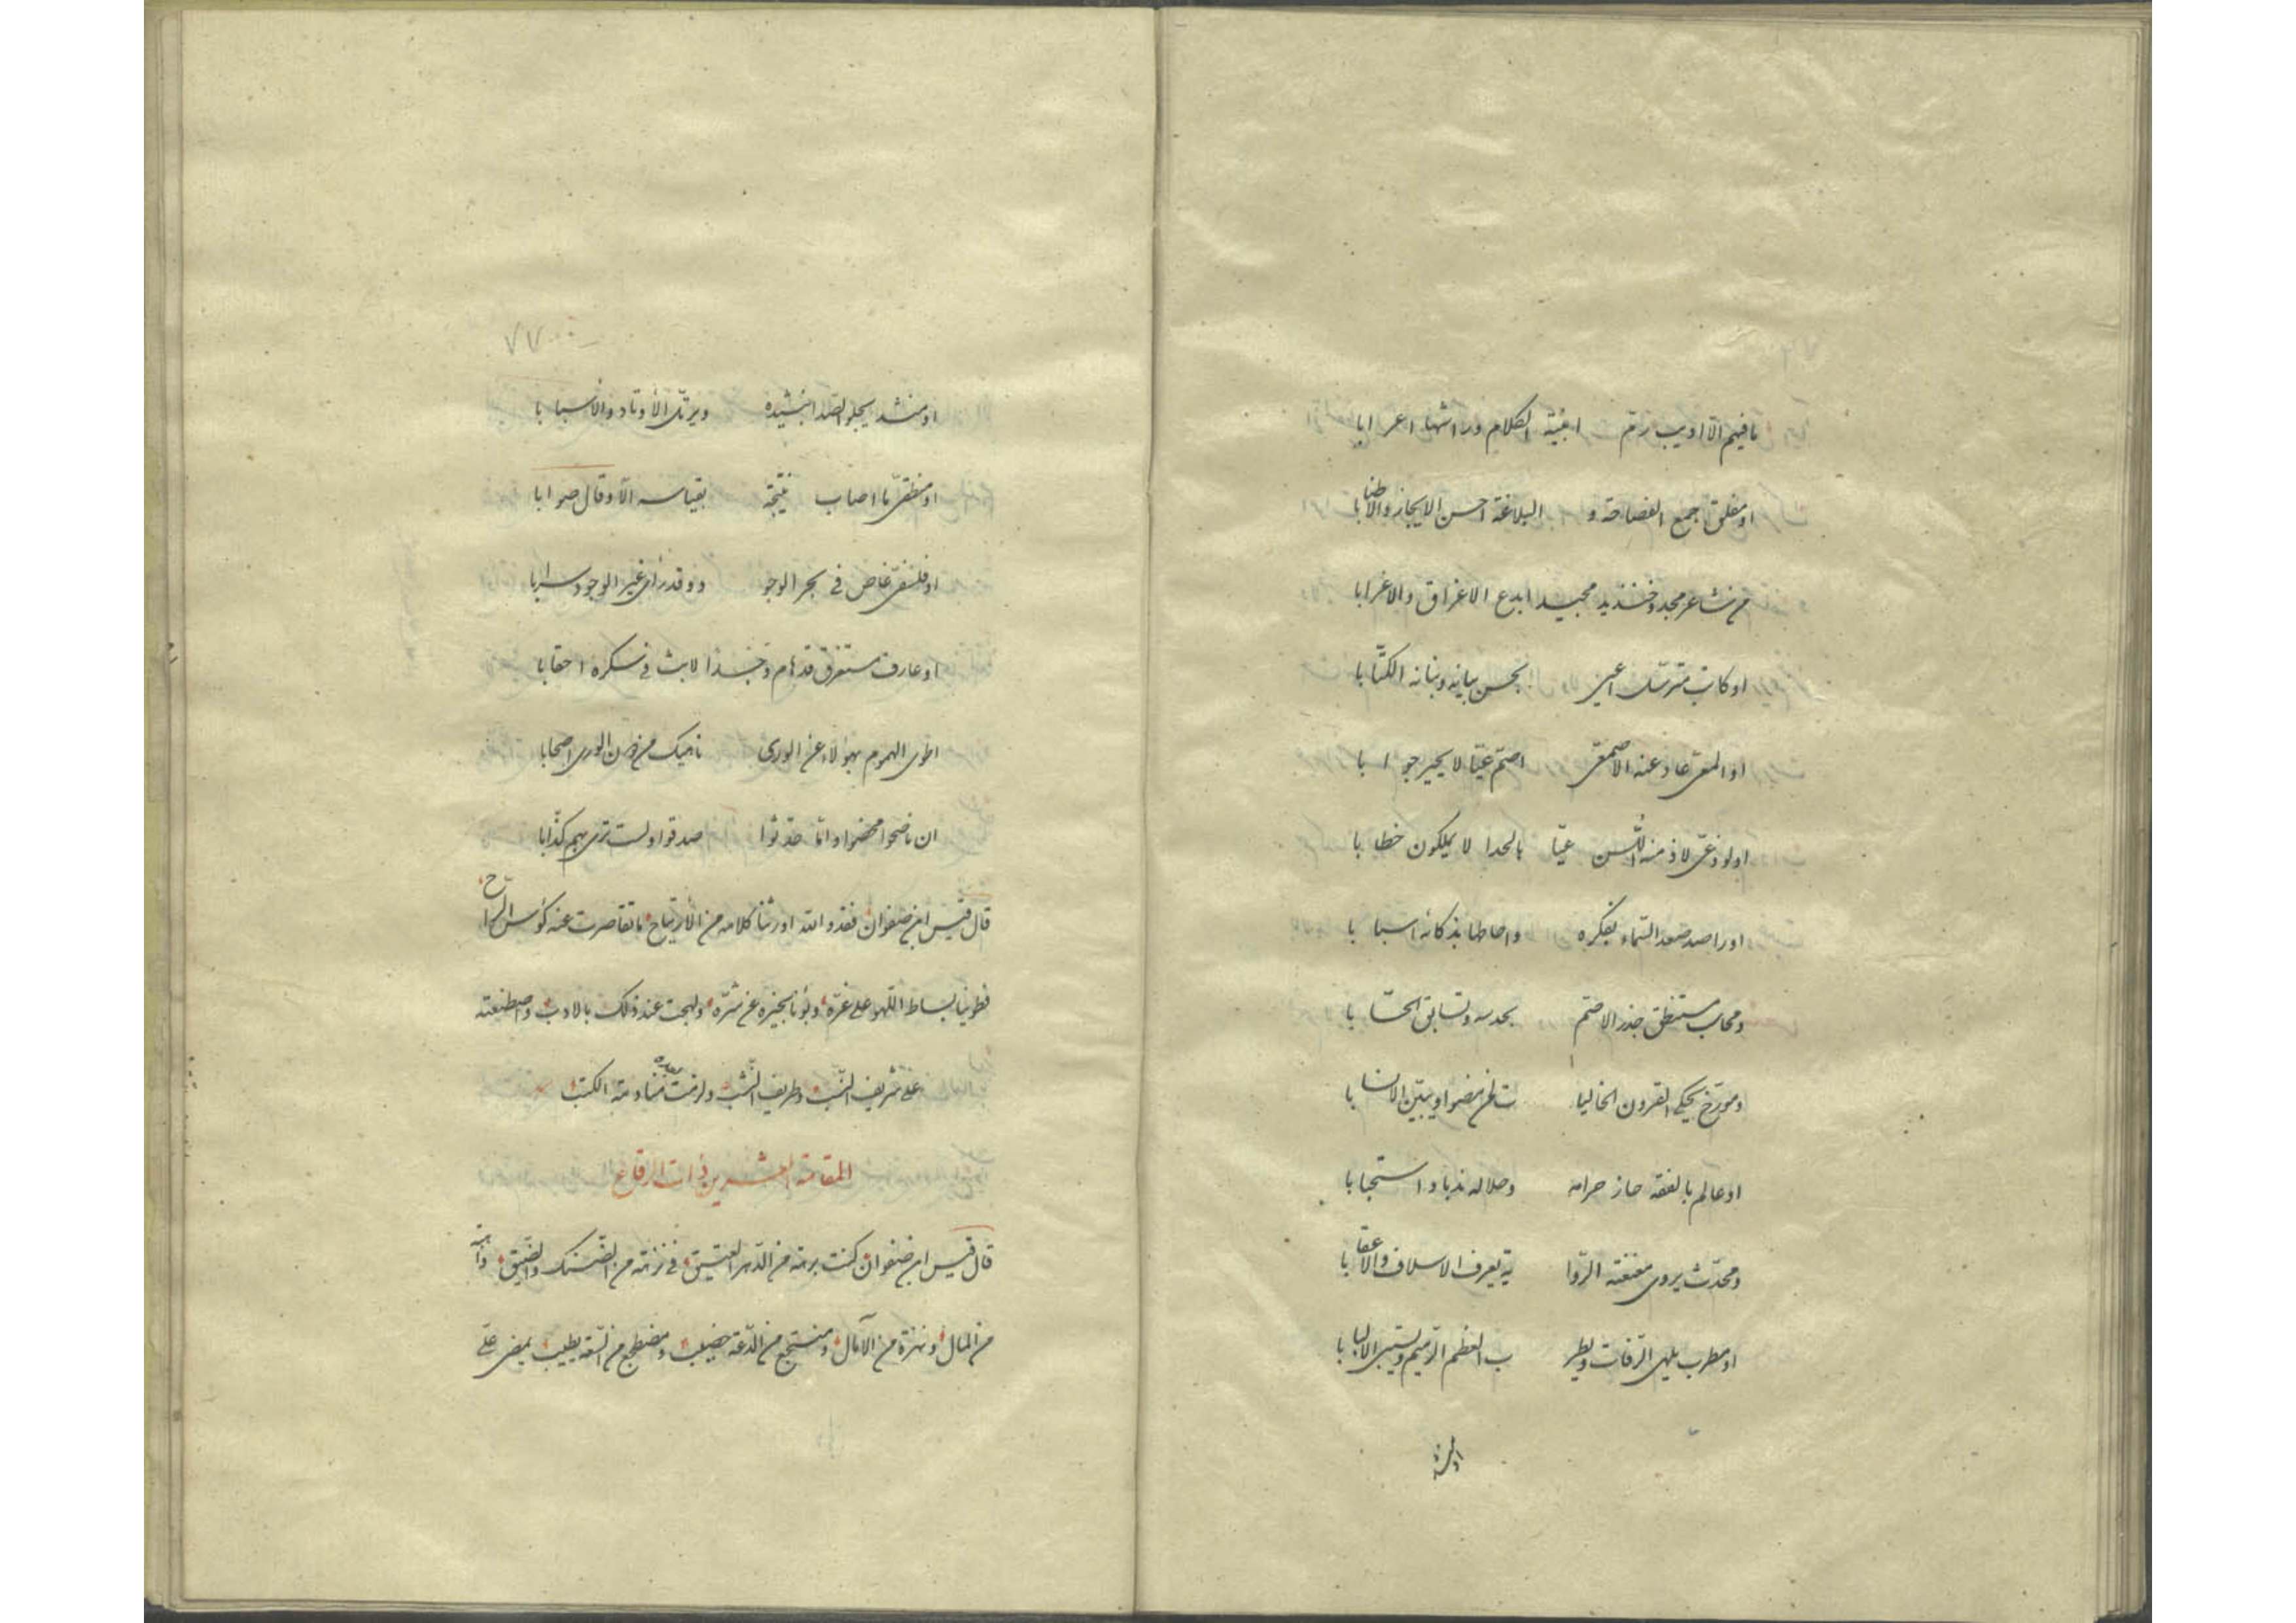 ما فيهم الّا اديب زمّ ابنية الكلام وراشها اعرابا
او مفلق جمع الفصاحة و البلاغة احسن الايجاز والاطنابا
من شاعر مجد وخنذيد مجيد ابدع الاغراق والاغرابا
او كاتب مترسّل اعيى بحسن بيانه وبنانه الكتّابا
او المعىّ عاد عنه الاصمعىّ اصمّ عيّا لا يحير جوابا
او لوذعىّ لاذ منه اللّسن عيّا بالحدا لا يملكون خطابا
او راصد صعد السّماء بفكره واحاطها بذكائه اسبابا
ومحاسب مستنطق جذر الاصم بحدسه وتسابق الحسّابا
ومورّخ يحكى القرون الخاليا ت لمن مضوا ويبيّن الانسابا
او عالم بالفقه حاز حرامه وحلاله ندبا واستحبابا
ومحدّث يروى معنعنة الرّوا ية يعرف الاسلاف والاعقابا
او مطرب يلهى الرّفات ويطر ب العظم الرّميم ويستبى الالبابا
او منشد
او منشد يجلو الصّدا بنشيده ويرتّل الأوتاد والاسبابا
او منطقىّ ما اصاب نتيجة بقياسه الّا وقال صوابا
او فلسفىّ غاص فى بحر الوجو د وقد رأى غير الوجود سرابا
او عارف مستغرق قد هام وجدا لابث فى سكره احقابا
اطوى الهموم بهولاء عن الورى ناهيك من دون الورى اصحابا
ان ناصحوا محضوا وامّا حدّثوا صدقوا ولست ترى بهم كذّابا
قال قيس ابن صفوان فقد والله اورثنا كلامه من الأرتياح ما تقاصرت عنه كؤس الرّاح
فطوينا بساط اللّهو على غرّه وبؤنا بخيره عن شرّه ولهجت عند ذلك بالادب واصطنعته
على شريف النّسب وطريف النّشب ولزمت منادمة الكتب
المقامة العشرين ذات الرقاع
قال قيس ابن صفوان كنت برهة من الدّهر العتيق فى نزهة من الضّنك والضّيق وأهبة
من المال ونهزة من الآمال ومنتجع من الدّعة خصيب ومضطجع من السّعة يطيب يمضى علىّ